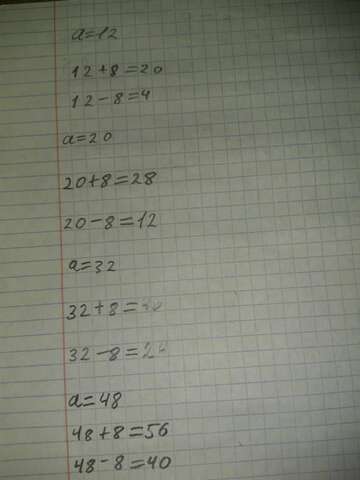 a=12
12+8=20
12-8=4
a=20
20+8=28
20-8=12
a=32
32+8=40
32-8=24
a=48
48+8=56
48-8=40